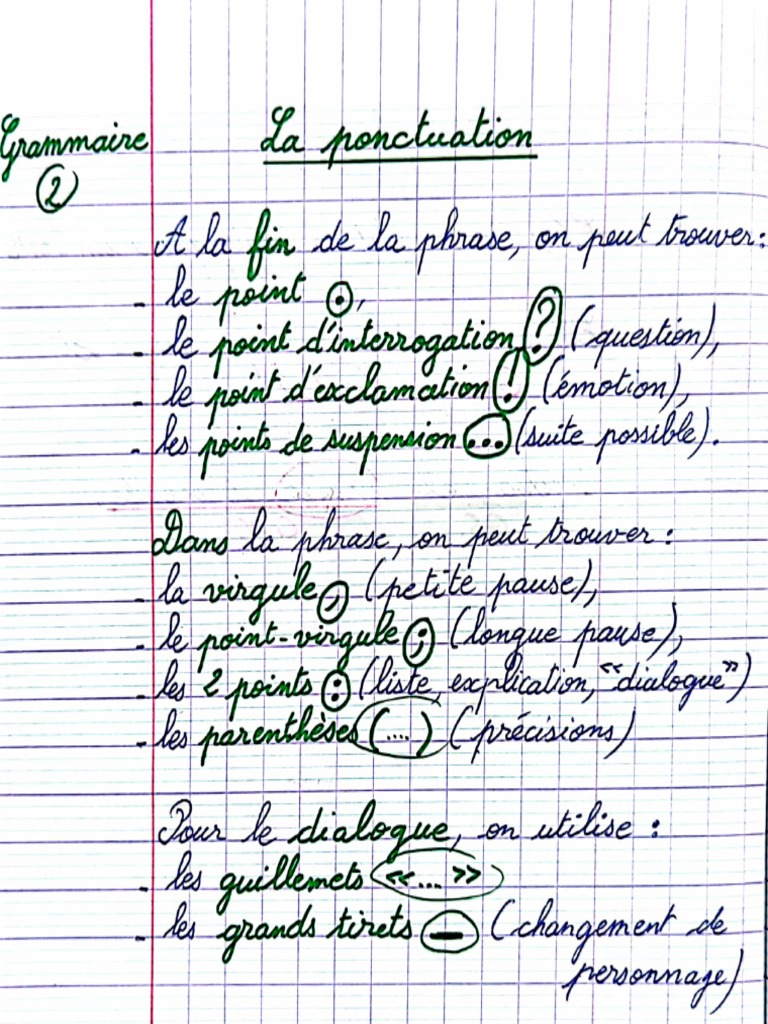 Grammaire
2
La ponctuation
A la fin de la phrase, on peut trouver :
- le point .,
- le point d'interrogation ? (question),
- le point d'exclamation ! (émotion),
- les points de suspension ... (suite possible).
Dans la phrase, on peut trouver :
- la virgule , (petite pause),
- le point-virgule ; (longue pause),
- les 2 points : (liste, explication, "dialogue")
- les parenthèses (....) (précisions)
Pour le dialogue, on utilise :
- les guillemets «... »
- les grands tirets — (changement de
personnage)